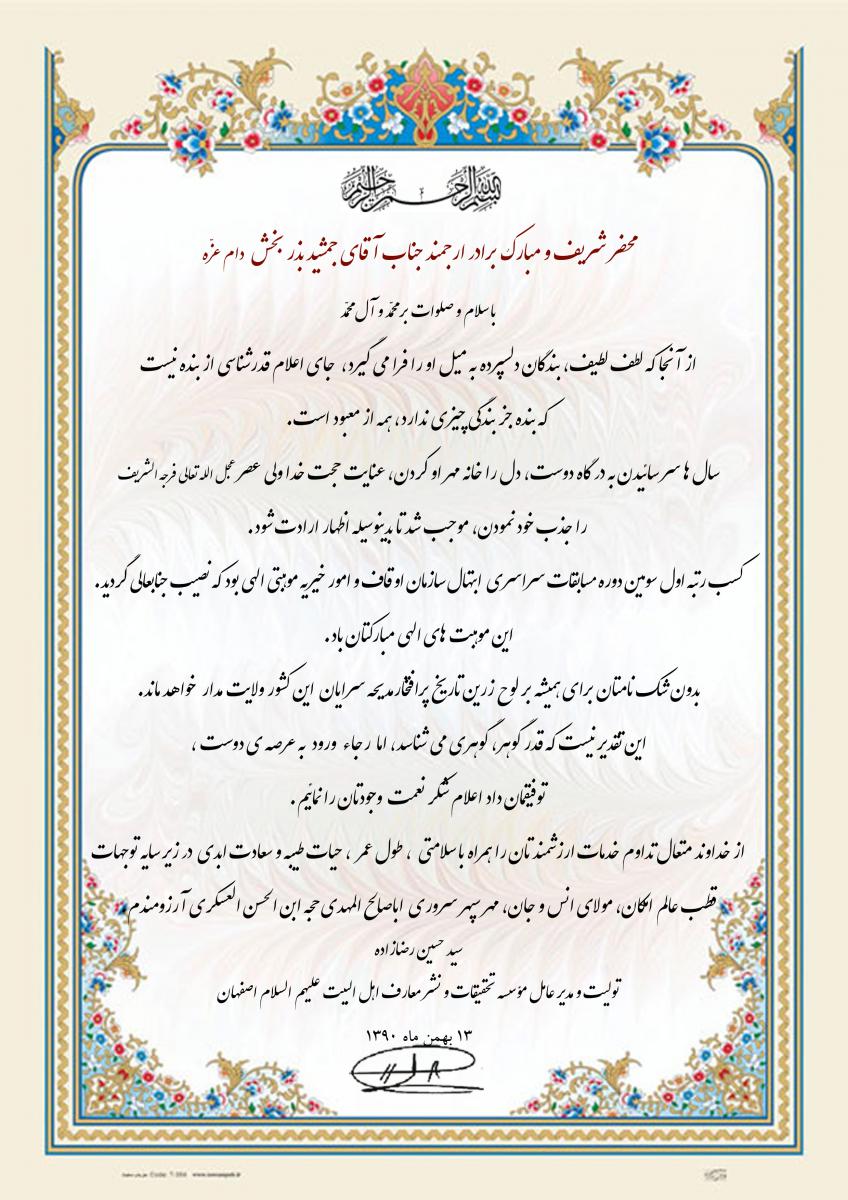 بسم الله الرحمن الرحیم
محضر شریف و مبارک برادر ارجمند جناب آقای جمشید بذر بخش دام عزّه
با سلام و صلوات بر محمّد و آل محمّد
از آنجا که لطف لطیف، بندگان دلسپرده به میل او را فرا می گیرد، جای اعلام قدرشناسی از بنده نیست
که بنده جز بندگی چیزی ندارد، همه از معبود است.
سال ها سر سائیدن به درگاه دوست، دل را خانه مهر او کردن، عنایت حجت خدا ولی عصر عجل الله تعالی فرجه الشریف
را جذب خود نمودن، موجب شد تا بدینوسیله اظهار ارادت شود.
کسب رتبه اول سومین دوره مسابقات سراسری ابتهال سازمان اوقاف و امور خیریه موهبتی الهی بود که نصیب جنابعالی گردید.
این موهبت های الهی مبارکتان باد.
بدون شک نامتان برای همیشه بر لوح زرین تاریخ پرافتخار مدیحه سرایان این کشور ولایت مدار خواهد ماند.
این تقدیر نیست که قدر گوهر، گوهری می شناسد، اما رجاء ورود به عرصه ی دوست ،
توفیقمان داد اعلام شکر نعمت وجودتان را نمائیم .
از خداوند متعال تداوم خدمات ارزشمندتان را همراه با سلامتی ، طول عمر ، حیات طیبه و سعادت ابدی در زیر سایه توجهات
قطب عالم امکان، مولای انس و جان، مهر سپهر سروری اباصالح المهدی حجه ابن الحسن العسکری آرزومندم
سید حسین رضازاده
تولیت و مدیر عامل مؤسسه تحقیقات و نشر معارف اهل البیت علیهم السلام اصفهان
۱۳ بهمن ماه ۱۳۹۰